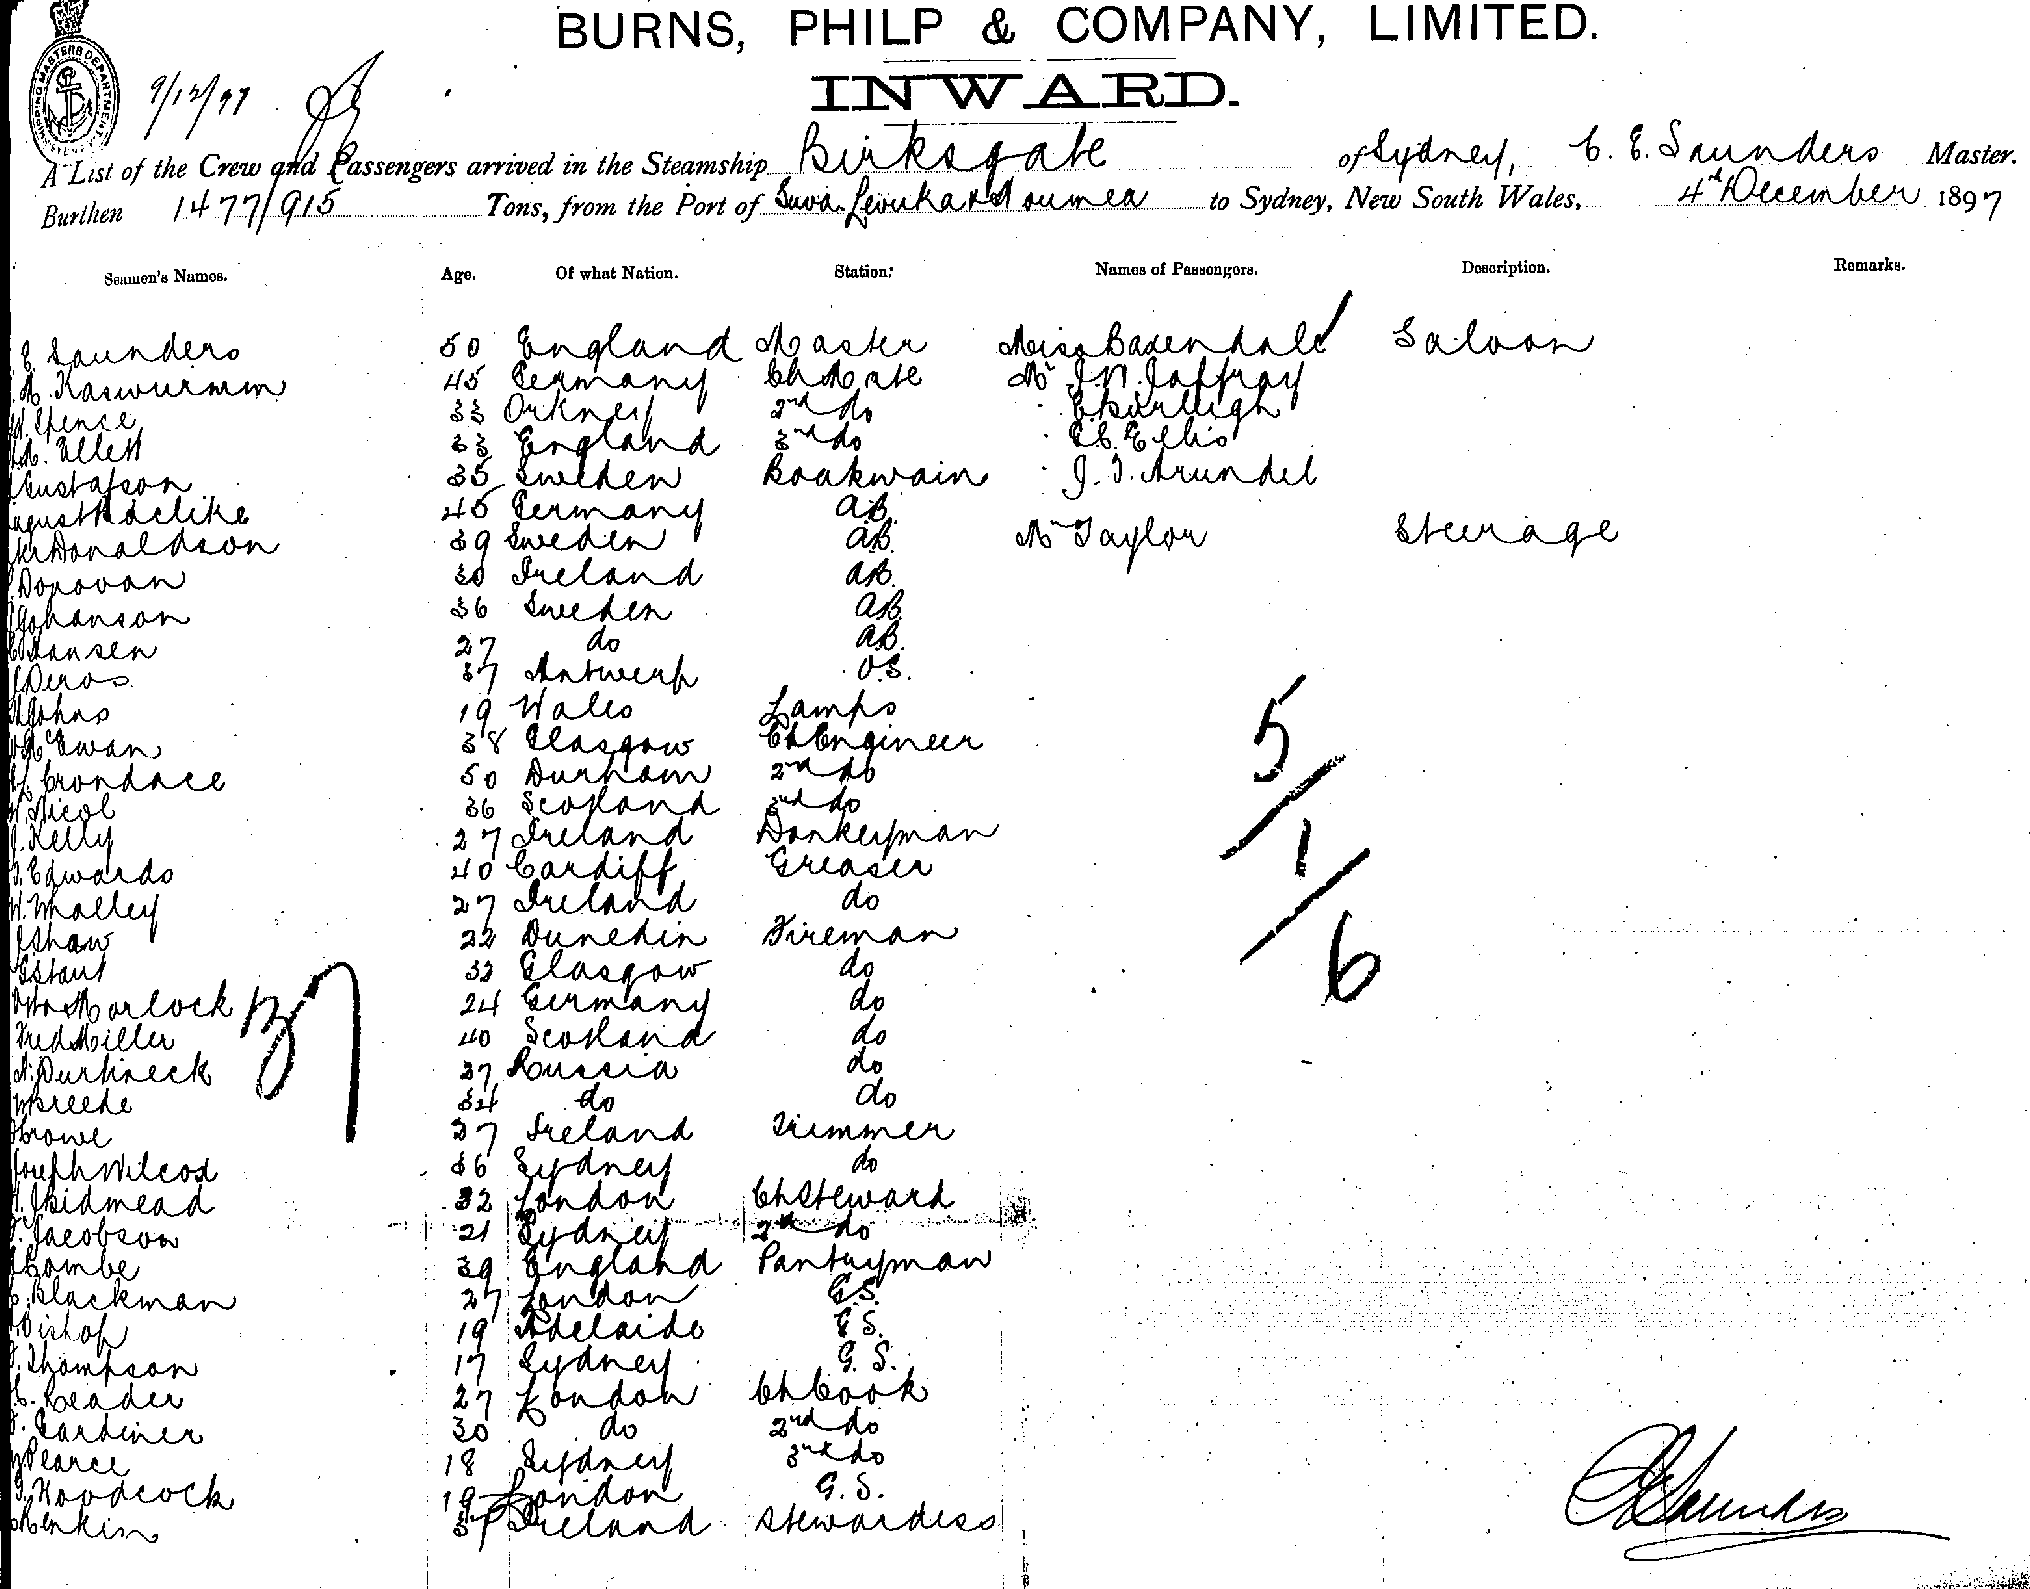 BURNS, PHILP & COMPANY, LIMITED.
INWARD.
9/12/97
A List of the Crew and Passengers arrived in the Steamship Birksgate of Sydney, C. E. Saunders Master.
Burthen 1477/915 Tons, from the Port of Suva Levuka & Noumea to Sydney, New South Wales, 4th December 1897
Seamen's Names. Age. Of what Nation. Station. Names of Passengers. Description. Remarks.
E Saunders 50 England Master Miss Baxendale Saloon
Kaswurmm 45 Germany Ch Mate Mr J. N. Jaffray
Spence 33 Orkney 2nd do
Ellett 33 England 3rd do E.C. Ellis
Gustafson 35 Sweden Boatswain J. T. Arundel
45 Germany A.B.
Donaldson 39 Sweden A.B. Mr Taylor Steerage
Donovan 30 Ireland A.B.
Johanson 36 Sweden A.B.
Hansen 27 do A.B.
Deros 37 Antwerp O.S.
Johns 19 Wales Lamps
McEwan 38 Glasgow Ch Engineer
Crondace 50 Durham 2nd do
Nicol 36 Scotland 3rd do
J. Kelly 27 Ireland Donkeyman
Edwards 40 Cardiff Greaser
W. Malley 27 Ireland do
Shaw 22 Dunedin Fireman
32 Glasgow do
Otto Morlock 24 Germany do
Fred Miller 40 Scotland do
37 Russia do
34 do do
Crowe 27 Ireland Trimmer
Joseph Wilcox 36 Sydney do
Skidmead 32 London Ch Steward
Jacobson 21 Sydney 2nd do
Combe 39 England Pantryman
Blackman 27 London G.S.
Bishop 19 Adelaide G.S.
Thompson 17 Sydney G.S.
Reader 27 London Ch Cook
Gardiner 30 do 2nd do
Pearce 18 Sydney 3rd do
Woodcock 19 London G.S.
Henkin 37 Ireland Stewardess
37
5/1/6
C E Saunders